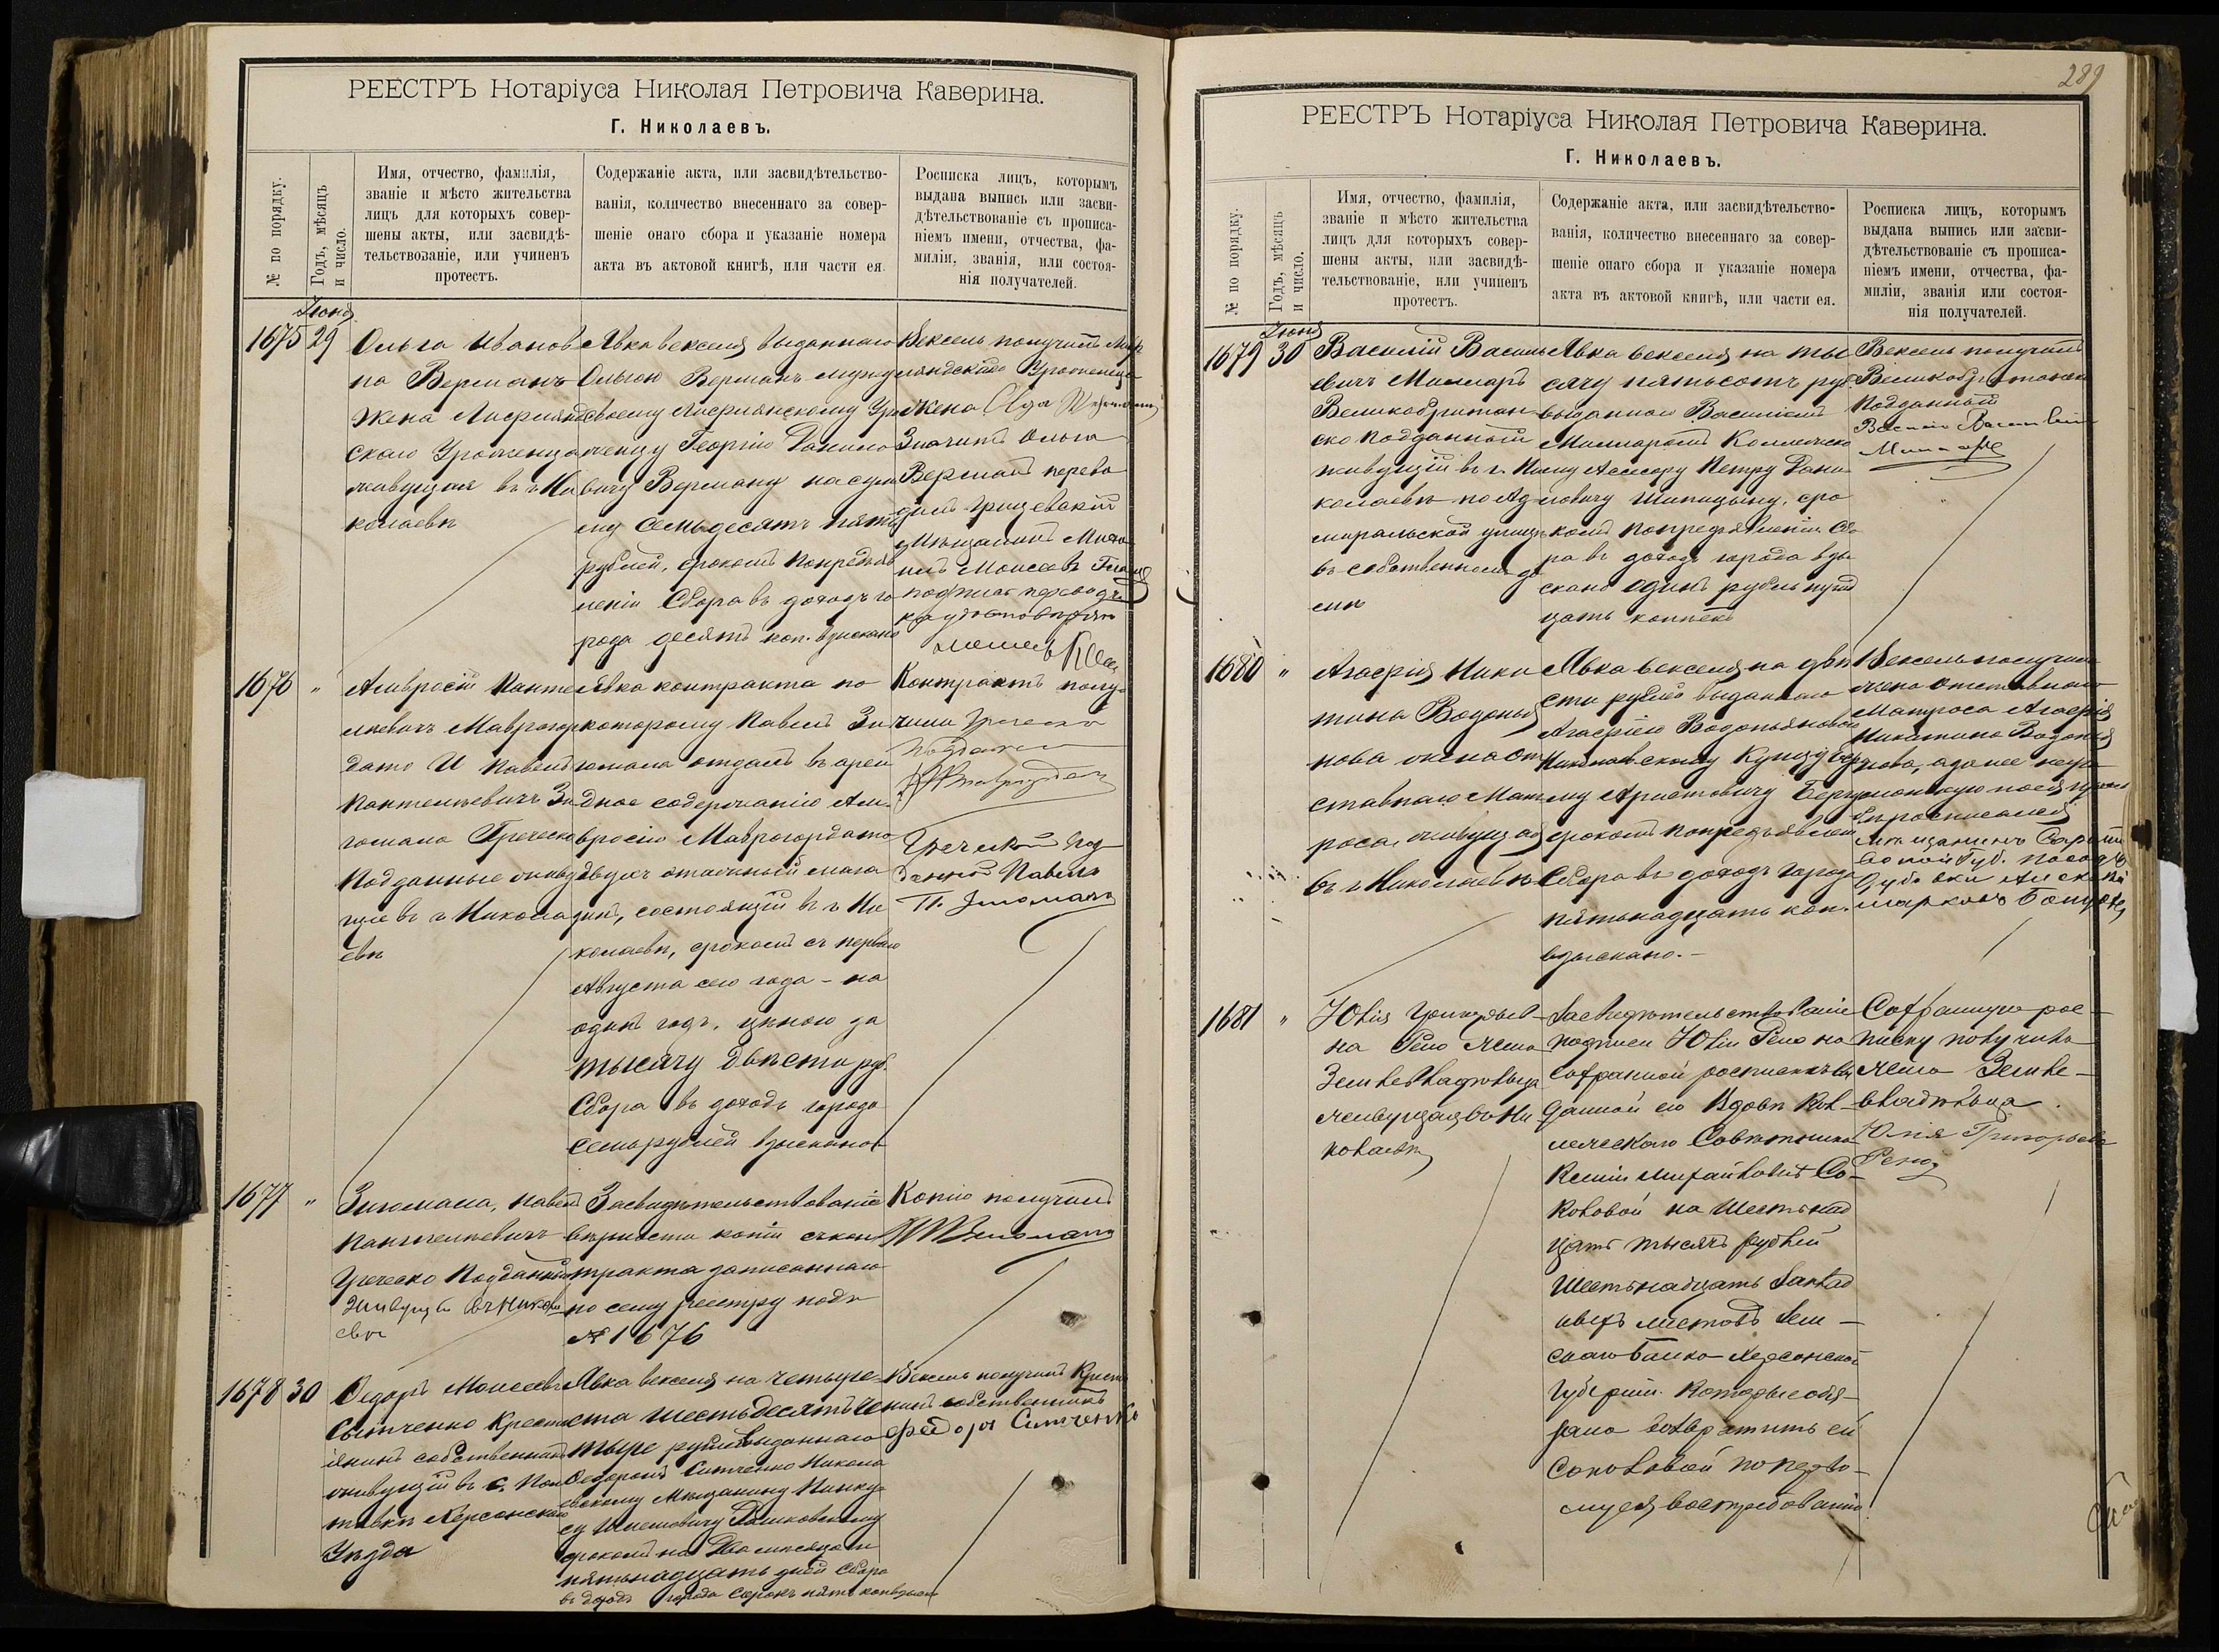 РЕЕСТРЪ Нотаріуса Николая Петровича Каверина.
Г. Николаевъ.
№ по порядку.
Годъ, мѣсяцъ
и число.
Имя, отчество, фамилія,
званіе и мѣсто жительства
лицъ для которыхъ совер-
шены акты, или засвидѣ-
тельствованіе, или учиненъ
протестъ.
Содержаніе акта, или засвидѣтельство-
ванія, количество внесеннаго за совер-
шеніе онаго сбора и указаніе номера
акта въ актовой книгѣ, или части ея.
Росписка лицъ, которымъ
выдана выпись или засви-
дѣтельствованіе съ прописа-
ніемъ имени, отчества, фа-
миліи, званія, или состоя-
нія получателей.
1675
29
Ольга Иванов
на Верманъ
жена
скаго Уроженца
живущая въ г. Ни
колаевѣ
Явка векселя выданнаго
Ольгою Верманъ мужу
своему
Георгію Данило
вичу Верману на сум
му семьдесятъ пять
рублей, срокомъ попредъяв
ленію Сбора въ доходъ го
рода десять коп. взыскано
Вексель получилъ
Уроженца
жена
Значитъ Ольга
Верманъ перево
дилъ
Мѣщанинъ
Моисеевъ
подпись
1676
"
Амвросій Панте
лѣевичъ Маврогор
дато и Павелъ
Пантелѣевичъ Зи
гомала Греческо
Подданные живу
щіе въ г Никола
евѣ
Явка контракта по
которому Павелъ Зи
гомала отдалъ въ арен
дное содержаніе Ам
вросію Маврогордато
мага
зинъ, состоящій въ г Ни
колаевѣ, срокомъ съ перваго
Августа сего года - на
одинъ годъ, цѣною за
тысячу двѣсти руб.
Сбора въ доходъ города
семь рублей взыскано
Контрактъ полу
чили Греческо
подданные
Греческій под
данный Павелъ
П.
1677
"
Зигомала, Павелъ
Пантелѣевичъ
Греческо Подданный
живущій въ Никола
евѣ
Засвидѣтельствованіе
вѣрности копіи съ кон
тракта записаннаго
по сему реестру подъ
№ 1676
Копію получилъ
1678
30
Ѳедоръ Моисеевъ
Сытченко Кресть
янинъ собственникъ
живущій въ с. Пол
тавкѣ Херсонскаго
Уѣзда
Явка векселя на четыре
ста шестьдесятъ че
тыре рубля выданнаго
Ѳедоромъ Сытченко Никола
евскому Мѣщанину Пинку
су
срокомъ на два мѣсяца и
пятнадцать дней Сбора
въ доходъ города сорокъ пять коп взыск
Вексель получилъ Кресть
янинъ собственникъ
Федоръ Сытченко
289
РЕЕСТРЪ Нотаріуса Николая Петровича Каверина.
Г. Николаевъ.
№ по порядку.
Годъ, мѣсяцъ
и число.
Имя, отчество, фамилія,
званіе и мѣсто жительства
лицъ для которыхъ совер-
шены акты, или засвидѣ-
тельствованіе, или учиненъ
протестъ.
Содержаніе акта, или засвидѣтельство-
ванія, количество внесеннаго за совер-
шеніе онаго сбора и указаніе номера
акта въ актовой книгѣ, или части ея.
Росписка лицъ, которымъ
выдана выпись или засви-
дѣтельствованіе съ прописа-
ніемъ имени, отчества, фа-
миліи, званія или состоя-
нія получателей.
1679
30
Василій Василь
евичъ Милларъ
Великобритан
ско подданный
живущій въ г. Ни
колаевѣ по Ад
миральской улицѣ
въ собственномъ до
мѣ
Явка векселя на ты
сячу пятьсотъ руб.
выданнаго Василіемъ
Милларомъ Коллежско
му Асессору Петру Дани
ловичу Шипицыну, сро
комъ попредъявленію Сбо
ра въ доходъ города взы
скано одинъ рубль
цать копѣекъ
Вексель получилъ
Великобританск
подданный
1680
"
Агафія Ники
тина Водопья
нова жена от
ставнаго Мат
роса, живущая
въ г Николаевѣ
Явка векселя на двѣ
сти рублей выданнаго
Агафією Водопьяновою
Николаевскому Купцу
срокомъ попредъявлен
Сбора въ доходъ города
пятьнадцать коп.
взыскано.-
Вексель получила
жена отставнаго
Матроса Агафія
Никитина Водопья
нова, а за нее негра
мотную по ея прось
бѣ росписался
мѣщанинъ
1681
"
Юлія Григорьев-
на Рено жена
Землевладѣльца
живущая въ Ни
колаевѣ
Засвидѣтельствованіе
подписи Юліи Рено на
сохранной роспискѣ вы
данной ею Вдовѣ Кол-
лежскаго Совѣтника
Ксеніи Михайловнѣ Со-
коловой на шестьнад
цать тысячъ рублей
шестьнадцать заклад
ныхъ листовъ Зем-
скаго Банка Херсонской
Губерніи. Которые обя-
зана возвратить ей
Соколовой по перво-
му ея востребованію
Сохранную рос-
писку получила
жена Землев-
владѣльца
Юлія Григорьева
Рено